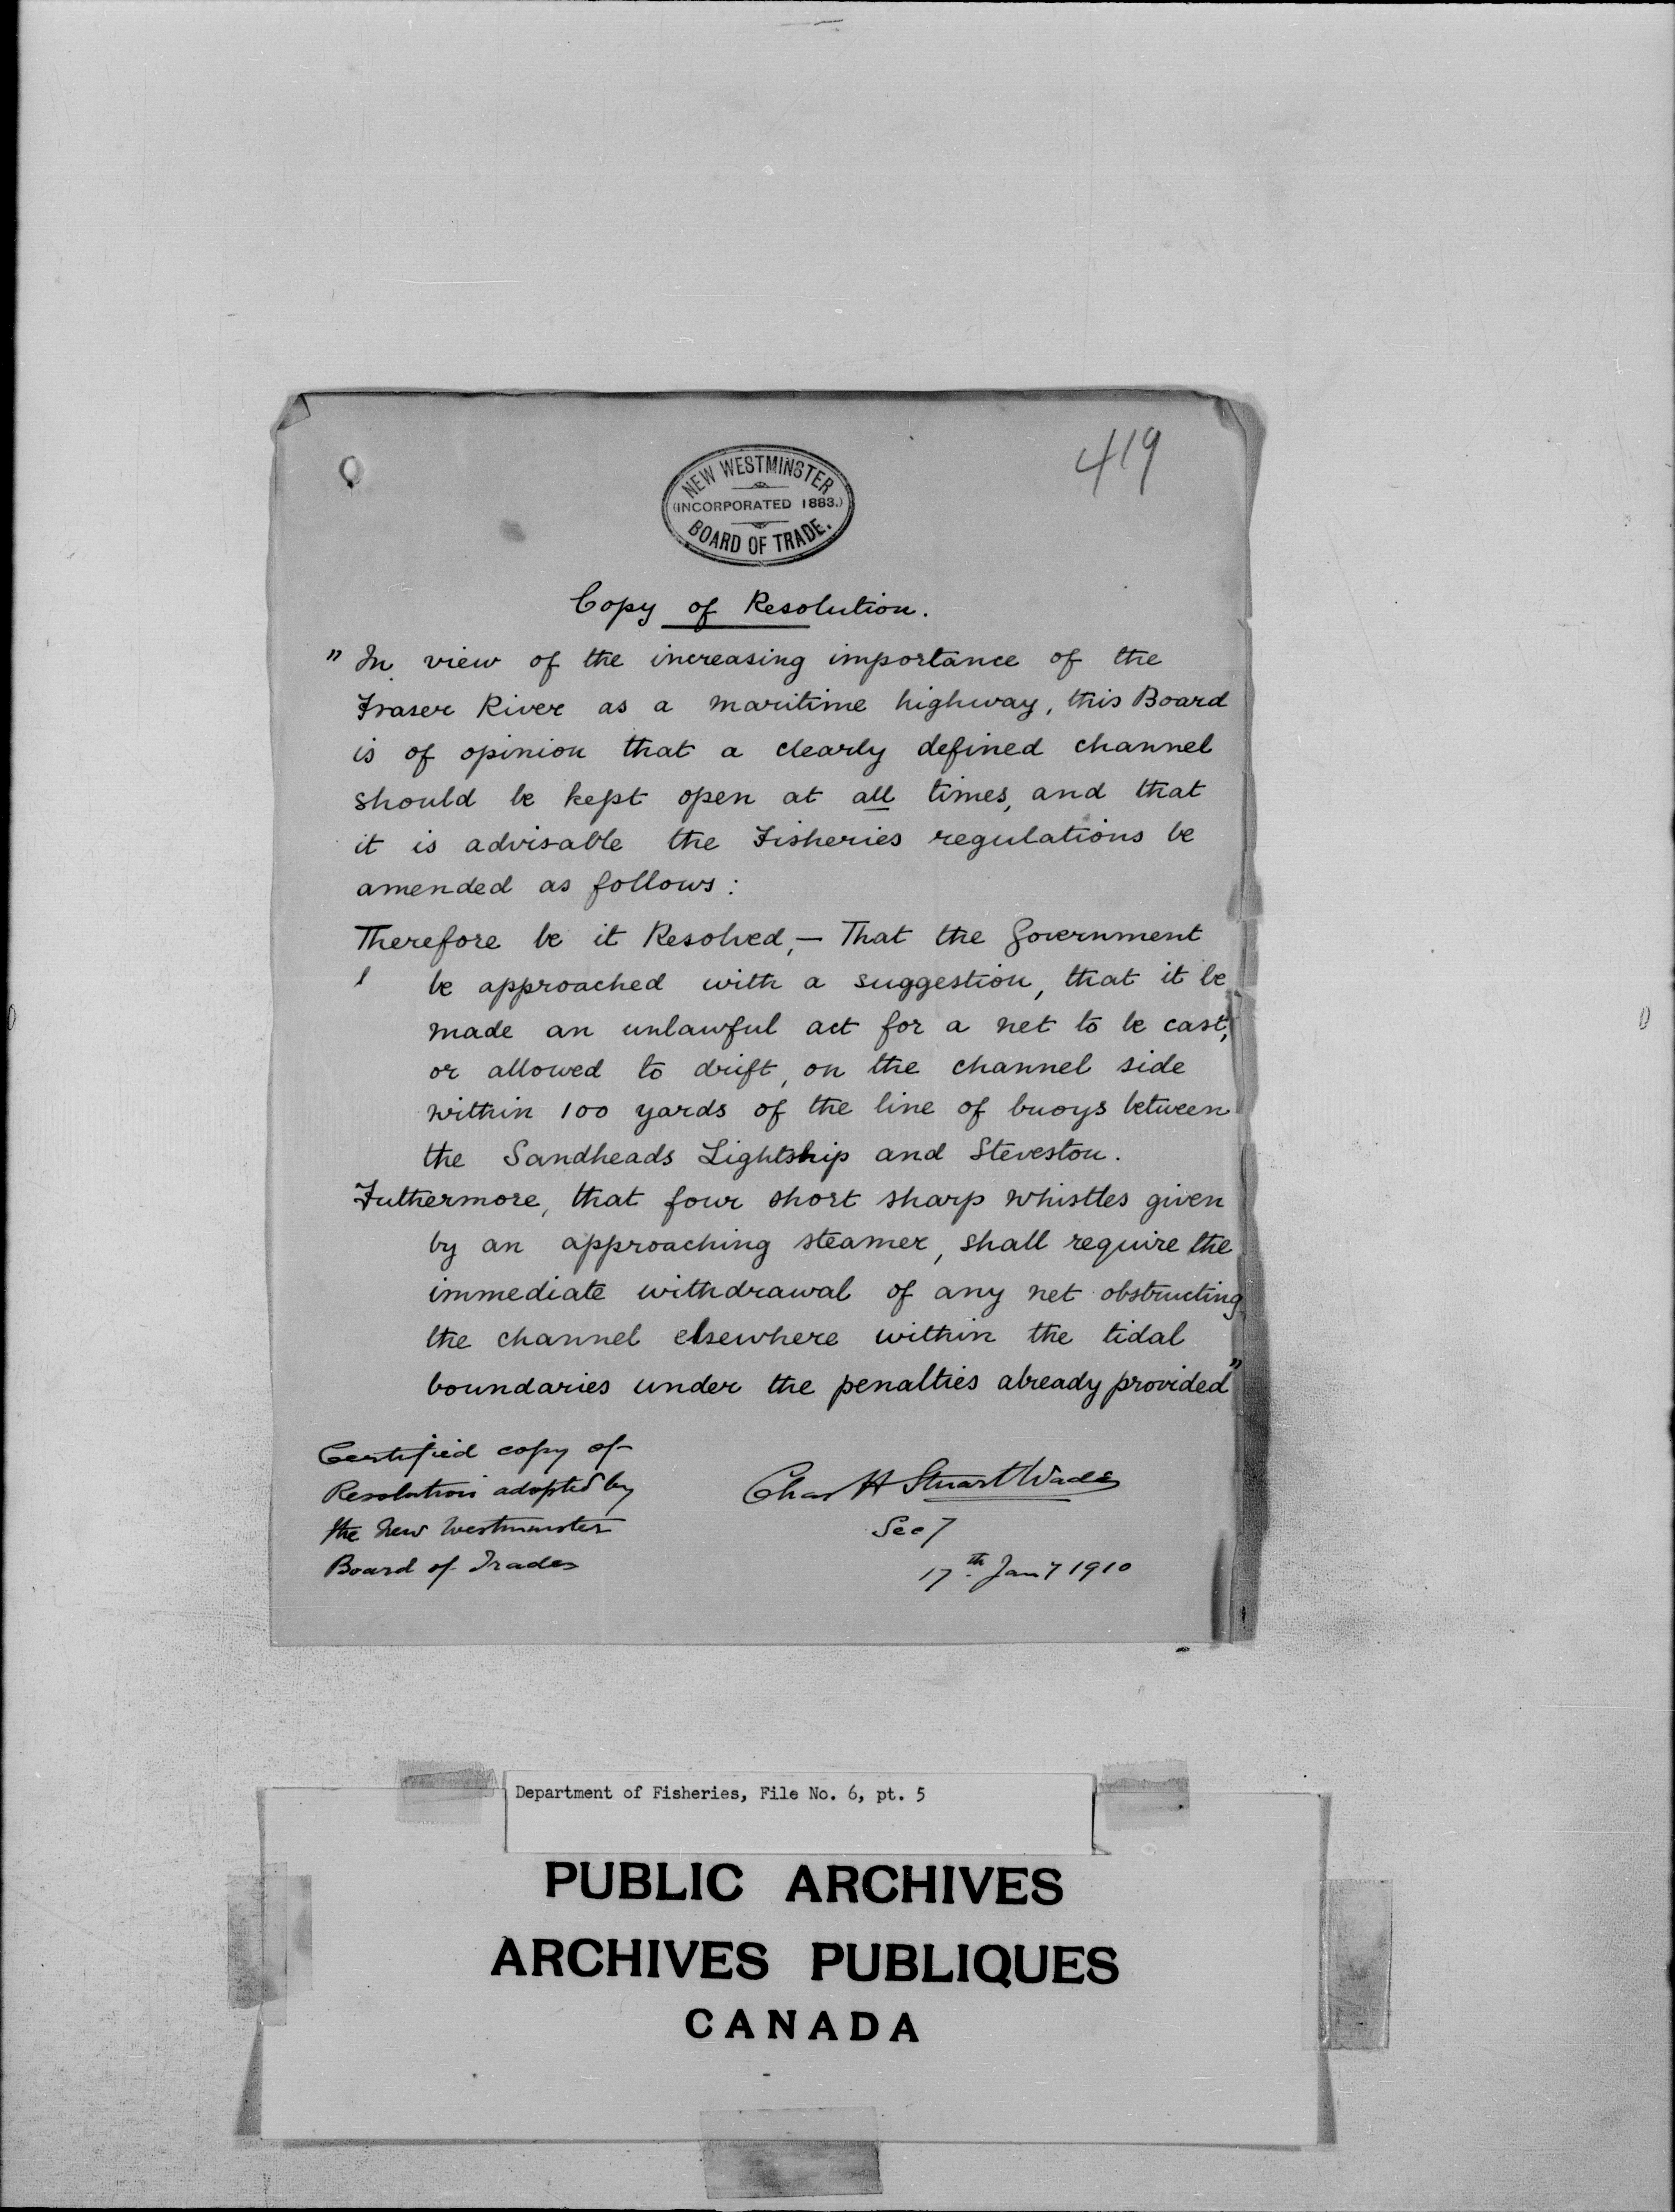 419
NEW WESTMINSTER
(INCORPORATED 1883.)
BOARD OF TRADE.
Copy of Resolution.
" In view of the increasing importance of the
Fraser River as a maritime highway, this Board
is of opinion that a clearly defined channel
should be kept open at all times, and that
it is advisable the Fisheries regulations be
amended as follows :
Therefore be it Resolved,— That the Government
be approached with a suggestion, that it be
made an unlawful act for a net to be cast,
or allowed to drift, on the channel side
within 100 yards of the line of buoys between
the Sandheads Lightship and Steveston.
Futhermore, that four short sharp whistles given
by an approaching steamer, shall require the
immediate withdrawal of any net obstructing
the channel elsewhere within the tidal
boundaries under the penalties already provided"
Certified copy of
Resolution adopted by
the New Westminster
Board of Trade
Chas H Stuart Wade
Secy
17th Jany 1910
Department of Fisheries, File No. 6, pt. 5
PUBLIC ARCHIVES
ARCHIVES PUBLIQUES
CANADA